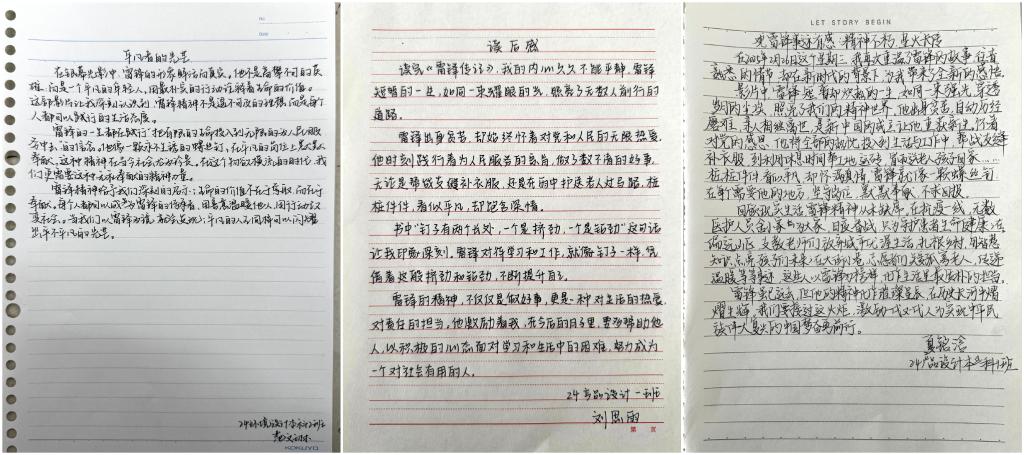 No.
Date
平凡者的光芒
在银幕光影中，雷锋的形象鲜活而真实。他不是高攀不可的英
雄，而是个平凡的年轻人，用数朴质的行动诠释着不凡的价值。
这部影片让我深刻认识到，雷锋精神不是遥不可及的理想，而是每个
人都可以践行的生活态度。
雷锋的一生都在践行"把有限的生命投入到无限的为人民服
务中去"的信念。他像一颗永不生锈的螺丝钉，在平凡的岗位上默默
奉献。这种精神在当今社会尤为珍贵。在这个物欲横流的时代，我
们更需要这种无私奉献的精神力量。
雷锋精神给予我们深刻的启示：生命的价值不在于索取，而在于
奉献。每个人都可以成为雷锋精神的传承者，用善意温暖他人，用行动诠释
真善美。当我们以雷锋为镜，都会发现：平凡的人不同样可以闪耀
出不平凡的光芒。
24环境设计本科2班
KOKUYO
读后感
读完《雷锋传记》，我的内心久久不能平静，雷锋
短暂的一生，如同一束耀眼的光，照亮了无数人前行的
道路。
雷锋出身贫苦，却始终怀着对党和人民的无限热爱，
他时刻践行着为人民服务的宗旨，做了数不清的好事，
无论是帮战友缝补衣服，还是在雨中护送老人过马路，桩
桩件件，看似平凡，却饱含深情。
书中"钉子有两个长处，一个是挤劲，一个是钻劲"这句话
让我印象深刻。雷锋对待学习和工作，就像钉子一样，凭
借着这股挤劲和钻劲，不断提升自己。
雷锋的精神，不仅仅是做好事，更是一种对生活的热爱，
对责任的担当。他激励着我，在今后的日子里，要多帮助他
人，以积极的心态面对学习和生活中的困难，努力成为
一个对社会有用的人。
24专品设计一班
刘思雨
第 页
LET STORY BEGIN
观雷锋事迹有感：精神不朽，星火长存
在2025年3月这个星期，我再次重温了雷锋的故事，怀着
崇敬的情愫，却在新时代的背景下，为我带来了全新的感悟。
影片中，雷锋短暂却炽热的一生，如同一束强光，穿透
岁月的尘埃，照亮了我们的精神世界。他出身贫苦，自幼历经
磨难，亲人相继离世，是新中国的成立让他重获新生。怀着
对党的感恩，他将全部的热忱投入到生活与工作中，帮战友缝
补衣服，到利用休息时间帮工地运砖，冒雨送老人孩子回家……
桩桩件件看似平凡，却饱含真情，雷锋就像一颗螺丝钉，
在每个需要他的地方，坚守岗位，默默奉献，不求回报。
回顾现实生活，雷锋精神从未缺席。在抗疫一线，无数
医护人员舍小家为大家，日夜奋战，只为守护患者生命健康；在
偏远山区，支教老师们放弃城市优渥生活，扎根乡村，用智慧
知识点亮孩子们未来；在大街小巷，志愿们关爱孤寡老人，传递
温暖等等事迹，这些人以雷锋为榜样，他们是生活里最质朴的担当。
雷锋虽已远去，但他的精神化作璀璨星辰，在历史长河中熠
熠生辉。我们要接过这火炬，激励一代又一代人为实现中华民
族伟大复兴的中国梦奋勇前行。
夏铭浛
24产品设计本科1班